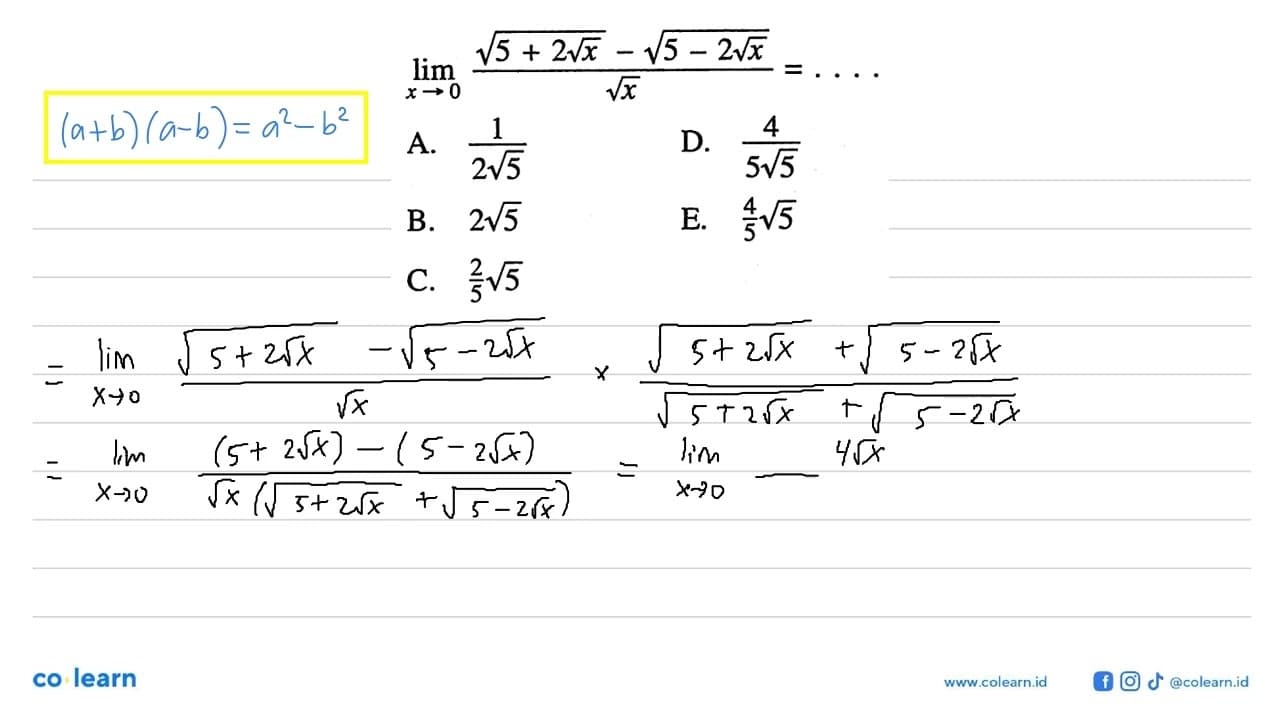 lim x→0 (√(5 + 2√x) − √(5 − 2√x)) / √x = . . . .
(a+b)(a-b) = a² - b²
A. 1/(2√5) D. 4/(5√5)
B. 2√5 E. 4/5 √5
C. 2/5 √5
= lim x→0 (√(5 + 2√x) - √(5 - 2√x)) / √x × (√(5 + 2√x) + √(5 - 2√x)) / (√(5 + 2√x) + √(5 - 2√x))
= lim x→0 ((5 + 2√x) - (5 - 2√x)) / (√x (√(5 + 2√x) + √(5 - 2√x))) = lim x→0 4√x
co learn www.colearn.id @colearn.id